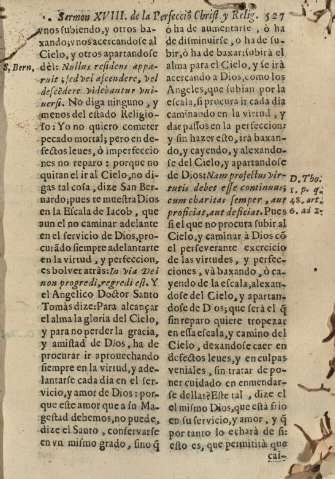 Sermon XVIII. de la Perfecciō Christ. y Relig. 527
vnos subiendo, y otros ba-
xando, y vnos acercandose al
Cielo, y otros apartandose
dèl: Nullus residens appa-
S. Bern.
ruit, sed vel ascendere, vel
descēdere videbantur vni-
uersi. No diga ninguno, y
menos del estado Religio-
so: Yo no quiero cometer
pecado mortal; pero en de-
fectos leues, ò imperfeccio
nes no reparo: porque no
quitan el ir al Cielo, no di-
gas tal cosa, dize San Ber-
nardo, pues te muestra Dios
en la Escala de Iacob, que
aun el no caminar adelante
en el servicio de Dios, pro-
curādo siempre adelantarte
en la virtud, y perfeccion,
es bolver atràs: In via Dei
non progredi, regredi est. Y
el Angelico Doctor Santo
Tomas dize: Para alcançar
el alma la gloria del Cielo,
y para no perder la gracia,
y amistad de Dios, ha de
procurar ir aprouechando
siempre en la virtud, y ade-
lantarse cada dia en el ser-
vicio, y amor de Dios: por-
que este amor que à su Ma-
gestad debemos, no puede,
dize el Santo, conservarse
en vn mismo grado, sino q̄
ò ha de aumentarse, ò ha de
de diminuirse, ò ha de su-
bir, ò ha de baxar: subirà el
alma para el Cielo, y se irà
acercando à Dios, como los
Angeles, que subian por la
escala, si procura ir cada dia
caminando en la virtud, y
dar passos en la perfeccion:
y sin hazer esto, irà baxan-
do, y cayendo, y alexando-
se del Cielo, y apartandose
de Dios: Nam profectus vir-
tutis debet esse continuus,
cum charitas semper, aut
proficiat, aut deficiat. Pues
D. Tho.
1. p. q.
48. art.
6. ad 2.
si el que no procura subir al
Cielo, y caminar à Dios cō
el perseverante exercicio
de las virtudes, y perfec-
ciones, và baxando, ò ca-
yendo de la escala, alexan-
dose del Cielo, y apartan-
dose de Dios: que serà el q̄
sin reparo quiere tropezar
en esta escala, y camino del
Cielo, dexandose caer en
defectos leues, y en culpas
veniales, sin tratar de po-
ner cuidado en enmendar-
se dellas? Este tal, dize el
el mismo Dios, que està frio
en su servicio, y amor, y q̄
por tanto lo echarà de si:
esto es, que permitirà que
cai-